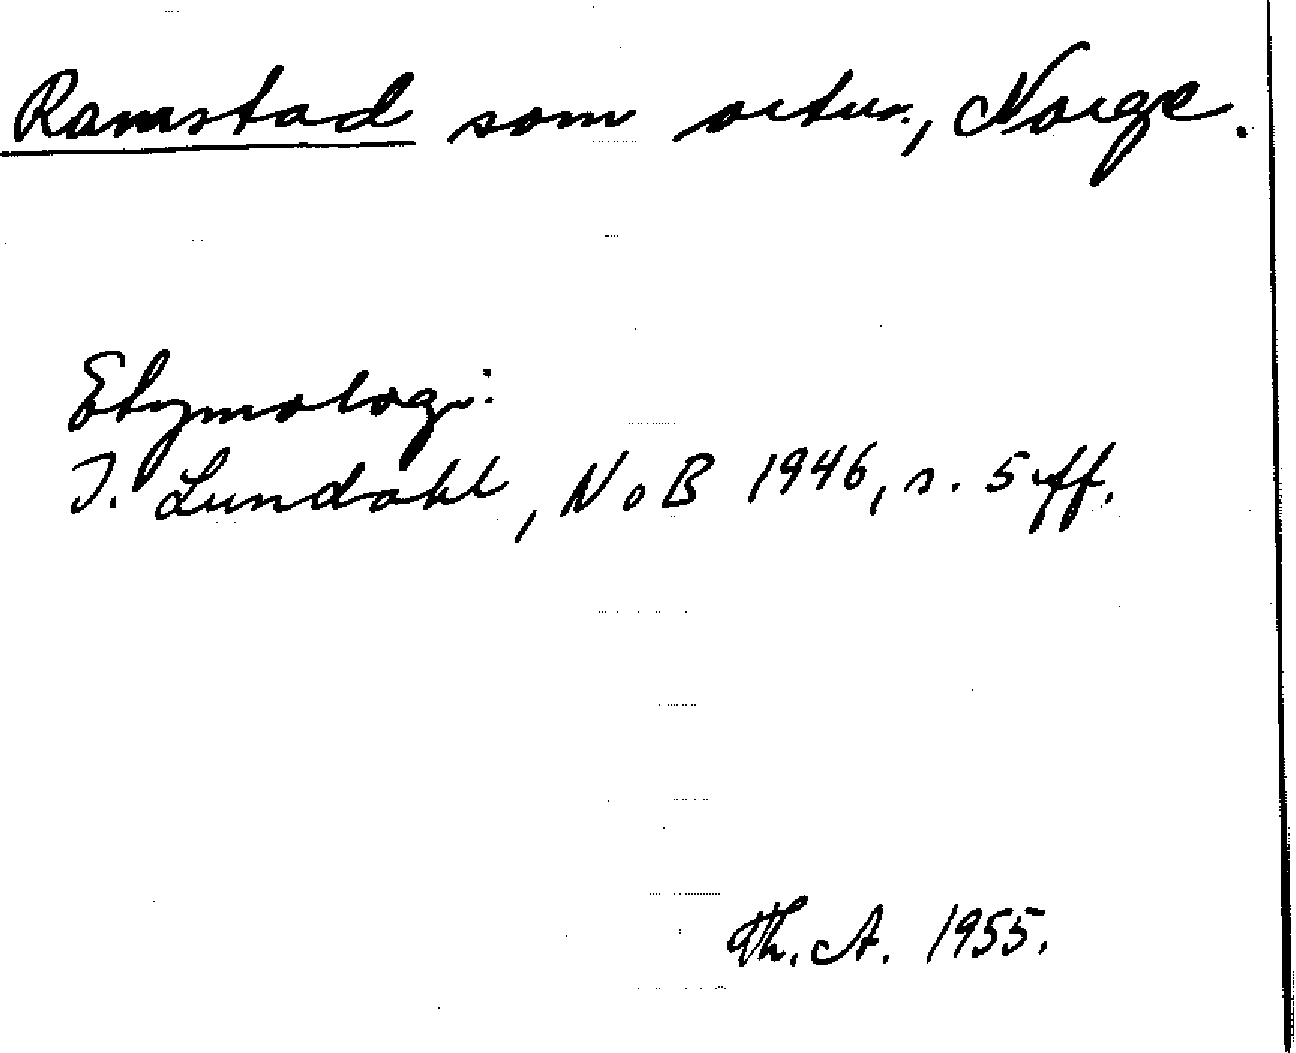 Ramstad som ortn., Norge.
Etymologi:
I. Lundahl, NoB 1946, s. 5 ff.
Th. A. 1955.